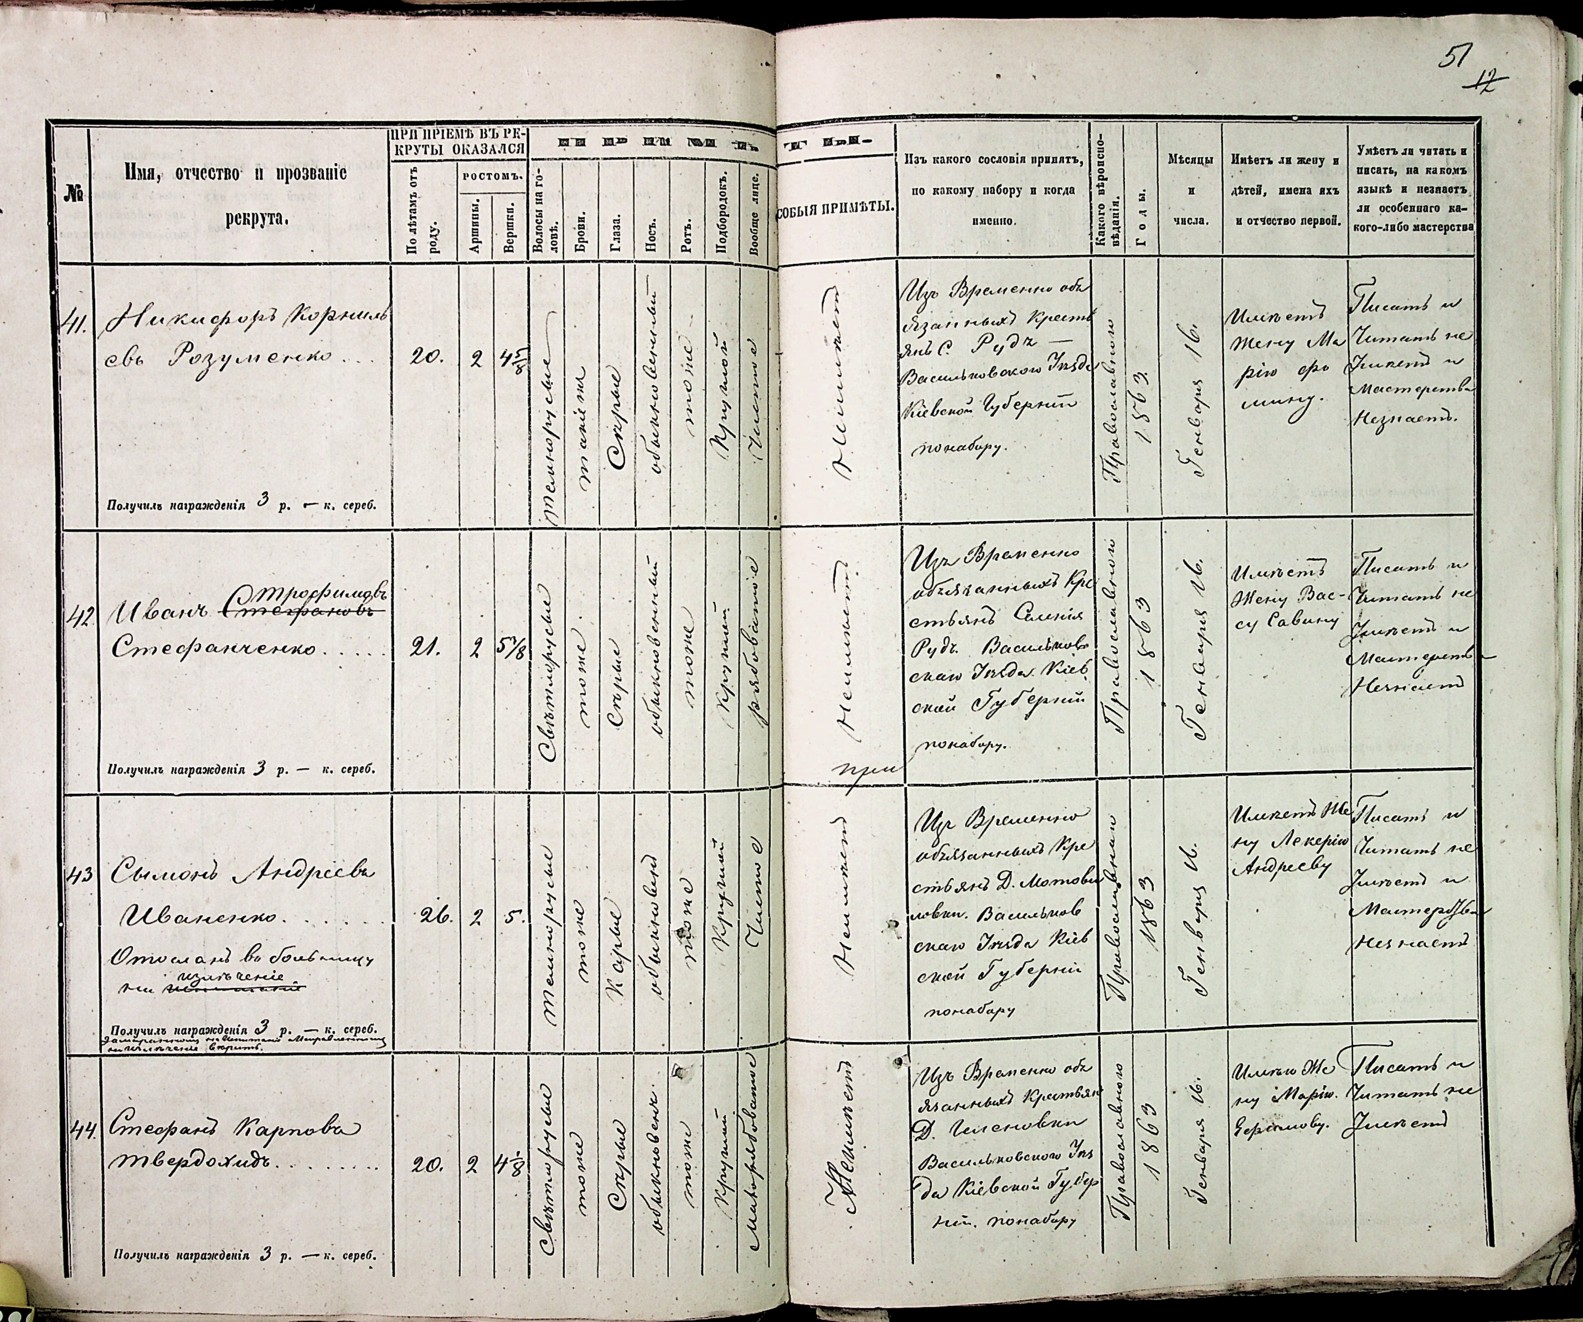 51
12
№
Имя, отчество и прозваніе
рекрута.
ПРИ ПРІЕМѢ ВЪ РЕ-
КРУТЫ ОКАЗАЛСЯ
По лѣтамъ отъ
роду.
РОСТОМЪ.
Аршины.
Вершки.
Волосы на го-
ловѣ.
Брови.
Глаза.
Носъ.
Ротъ.
Подбородокъ.
Вообще лице.
ОСОБЫЯ ПРИМѢТЫ.
Изъ какого сословія принятъ,
по какому набору и когда
именно.
Какого вѣроиспо-
вѣданія.
Годы.
Мѣсяцы
и
числа.
Имѣетъ ли жену и
дѣтей, имена ихъ
и отчество первой.
Умѣетъ ли читать и
писать, на какомъ
языкѣ и незнаетъ
ли особеннаго ка-
кого-либо мастерства
41.
Никифоръ Корниль
евъ Розуменко . . .
20.
2
4 5/8
темнорусые
такіежъ
Сѣрые
обыкновенный
тоже
Круглой
Чистое
Неимѣетъ
Изъ Временно обя
язанныхъ Кресть
янъ С. Рудъ —
Васильковского Уѣзда
Кіевской Губерніи
понабору.
Православного
1863
Генваря 16.
Имѣетъ
Жену Ма
рію Фо
мину.
Писать и
Читать не
Умѣетъ и
Мастерства
Незнаетъ.
Получилъ награжденія 3 р. — к. сереб.
42
Трофимовъ
Иванъ Стефановъ
Стефанченко . . . . .
21.
2
5 7/8
Свѣтлорусые
тоже
Сѣрые
обыкновенный
тоже
Круглый
рябоватое
Неимѣетъ
при
Изъ Временно
обязанныхъ Кре
стьянъ Селенія
Рудъ. Васильков
скаго Уѣзда Кіев
ской Губерніи
понабору.
Православной
1863
Генваря 16.
Имѣетъ
Жену Вас-
су Савину
Писать и
Читать не
Умѣетъ и
Мастерства
Незнаетъ
Получилъ награжденія 3 р. — к. сереб.
43
Сымонъ Андреевъ
Иваненко. . . . . .
Отосланъ въ больницу
излѣченіе
на испытаніе
26.
2
5.
темнорусые
тоже
Карые
обыкновен
тоже
Круглый
Чистое
Неимѣетъ
Изъ Временно
обязанныхъ Кре
стьянъ Д. Мотови
ловки. Васильков
скаго Уѣзда Кіев
ской Губерніи
понабору
Православный
1863
Генваря 16.
Имѣетъ Же
ну Лекерію
Андрееву
Писать и
Читать не
Умѣетъ и
Мастерства
Незнаетъ
Получилъ награжденія 3 р. — к. сереб.
44.
Стефанъ Карповъ
Твердохидъ. . . . . . . .
20.
2
4 1/8
Свѣтлорусые
тоже
Сѣрые
обыкновенъ.
тоже
Круглый
Малорябоватое
Неимѣетъ
Изъ Временно обя
язанныхъ Крестьян
Васильковского Уѣз
да Кіевской Губер
ніи. понабору
Православного
1863
Генваря 16.
Имѣю Же
ну Марію.
Писать и
Читать не
Умѣетъ
Получилъ награжденія 3 р. — к. сереб.